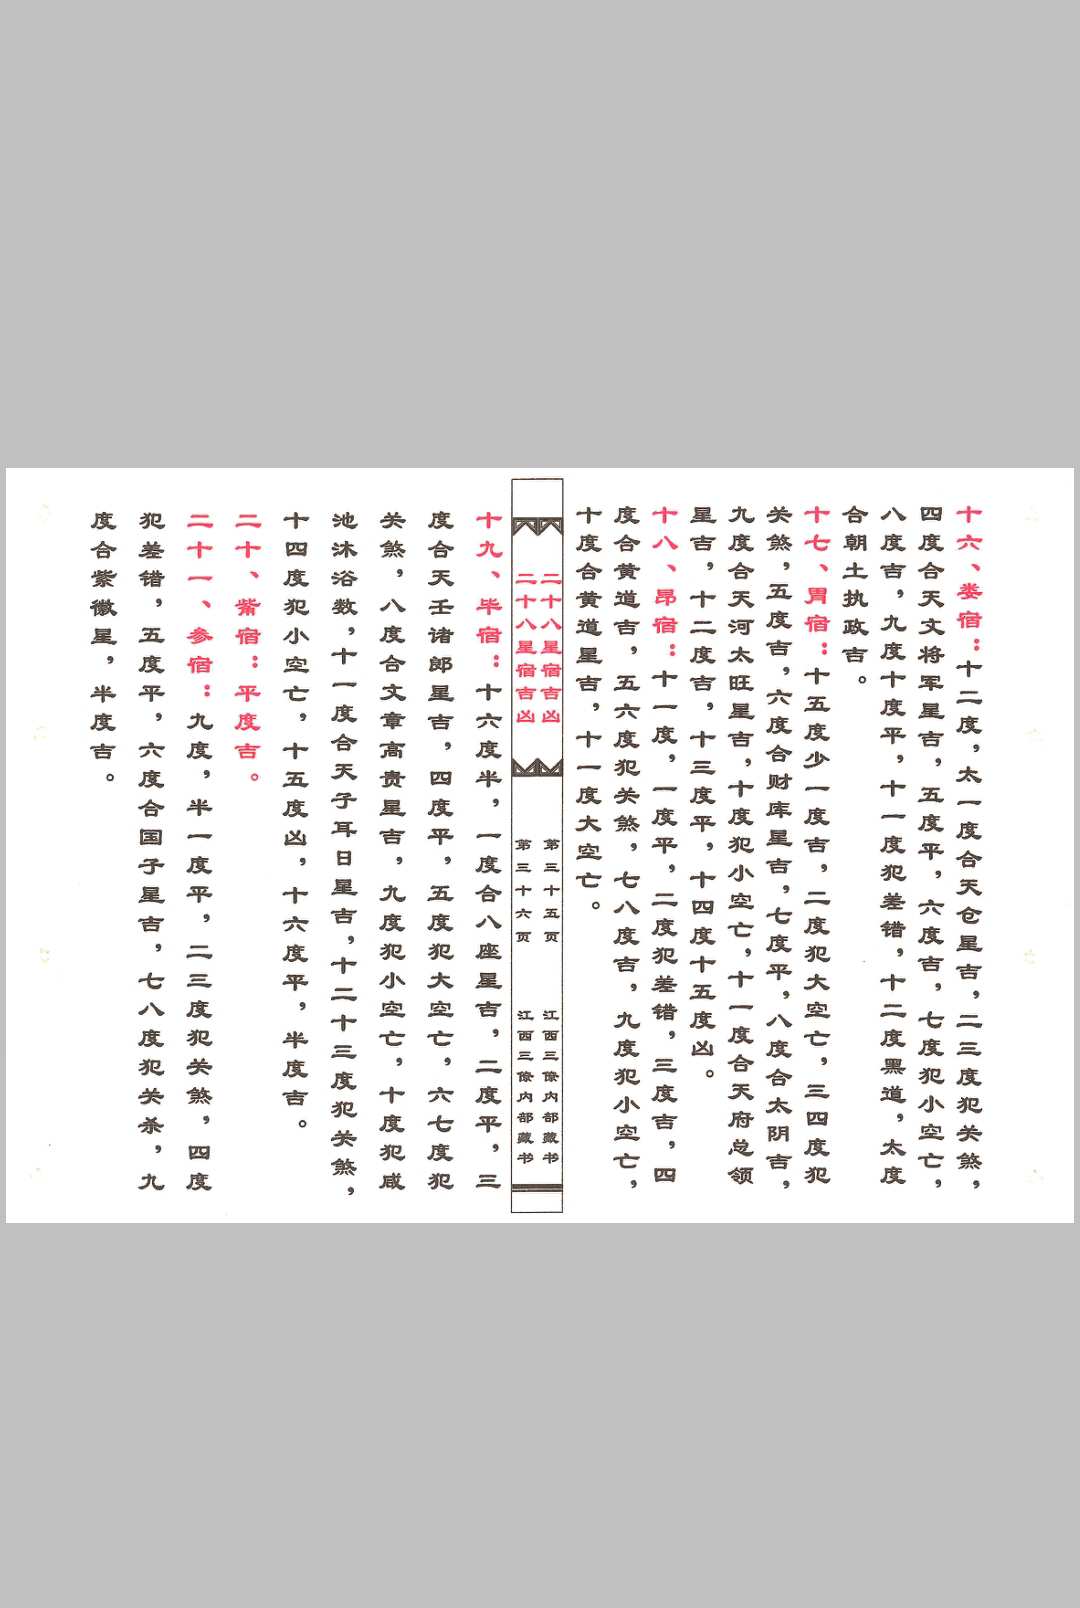 十六、娄宿：十二度，太一度合天仓星吉，二三度犯关煞，
四度合天文将军星吉，五度平，六度吉，七度犯小空亡，
八度吉，九度十度平，十一度犯差错，十二度黑道，太度
合朝土执政吉。
十七、胃宿：十五度少一度吉，二度犯大空亡，三四度犯
关煞，五度吉，六度合财库星吉，七度平，八度合太阴吉，
九度合天河太旺星吉，十度犯小空亡，十一度合天府总领
星吉，十二度吉，十三度平，十四度十五度凶。
十八、昂宿：十一度，一度平，二度犯差错，三度吉，四
度合黄道吉，五六度犯关煞，七八度吉，九度犯小空亡，
十度合黄道星吉，十一度大空亡。
二十八星宿吉凶
第三十五页
江西三僚内部藏书
二十八星宿吉凶
第三十六页
江西三僚内部藏书
十九、毕宿：十六度半，一度合八座星吉，二度平，三
度合天壬诸郎星吉，四度平，五度犯大空亡，六七度犯
关煞，八度合文章高贵星吉，九度犯小空亡，十度犯咸
池沐浴数，十一度合天子耳日星吉，十二十三度犯关煞，
十四度犯小空亡，十五度凶，十六度平，半度吉。
二十、觜宿：平度吉。
二十一、参宿：九度，半一度平，二三度犯关煞，四度
犯差错，五度平，六度合国子星吉，七八度犯关杀，九
度合紫徽星，半度吉。